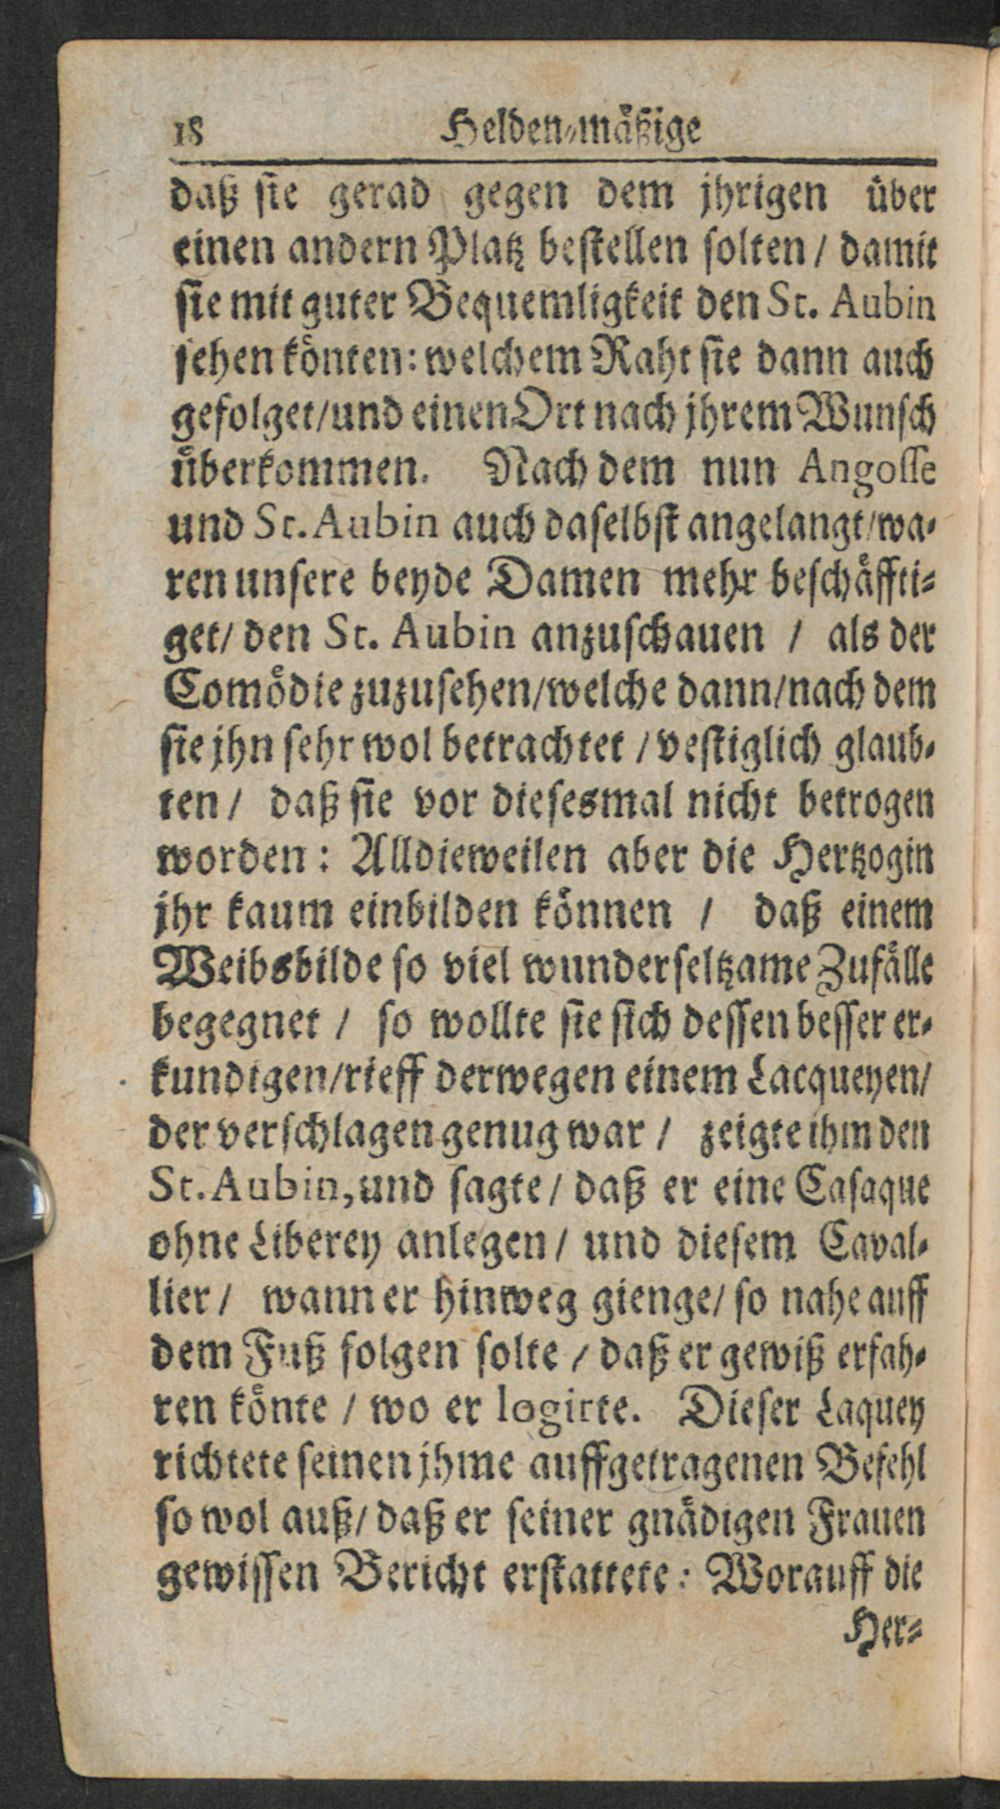 18 Helden-mäßige
daß sie gerad gegen dem jhrigen über
einen andern Platz bestellen solten / damit
sie mit guter Bequemligkeit den St. Aubin
sehen könten: welchem Raht sie dann auch
gefolget/und einen Ort nach jhrem Wunsch
überkommen. Nach dem nun Angosse
und St. Aubin auch daselbst angelangt/wa-
ren unsere beyde Damen mehr beschäffti-
get/ den St. Aubin anzuschauen / als der
Comödie zuzusehen/welche dann/nach dem
sie jhn sehr wol betrachtet / vestiglich glaub-
ten / daß sie vor diesesmal nicht betrogen
worden: Alldieweilen aber die Hertzogin
jhr kaum einbilden können / daß einem
Weibsbilde so viel wunderseltzame Zufälle
begegnet / so wollte sie sich dessen besser er-
kundigen/rieff derwegen einem Lacqueyen/
der verschlagen genug war / zeigte ihm den
St. Aubin, und sagte / daß er eine Casaque
ohne Liberey anlegen / und diesem Caval-
lier / wann er hinweg gienge/ so nahe auff
dem Fuß folgen solte / daß er gewiß erfah-
ren könte / wo er logirte. Dieser Laquey
richtete seinen jhme auffgetragenen Befehl
so wol auß/ daß er seiner gnädigen Frauen
gewissen Bericht erstattete: Worauff die
Her-